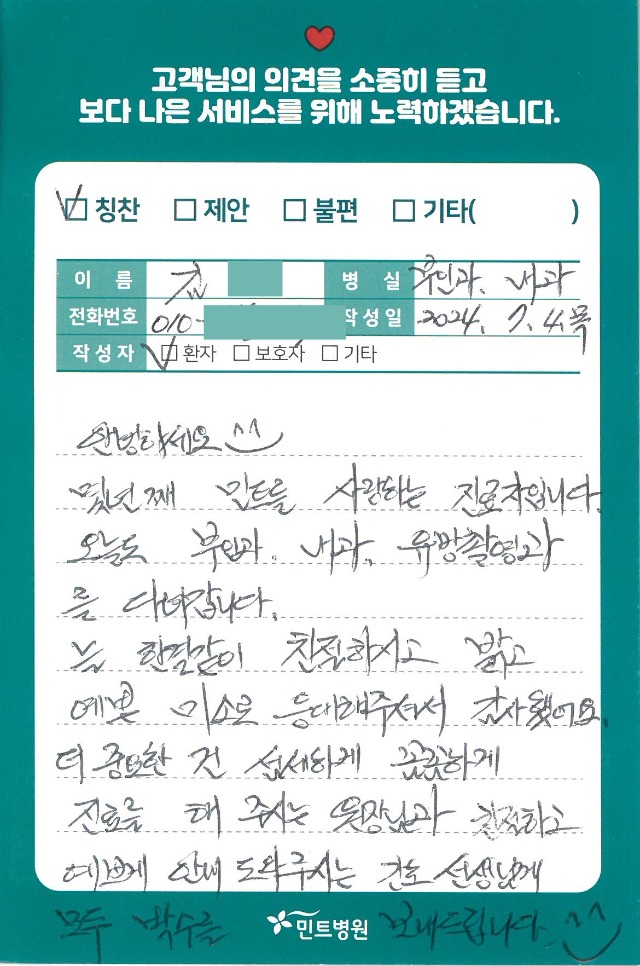 고객님의 의견을 소중히 듣고
보다 나은 서비스를 위해 노력하겠습니다.
칭찬 제안 불편 기타( )
이 름 김 병 실 부인과, 내과
전화번호 010- 작성일 2024. 7. 4. 목
작성자 환자 보호자 기타
안녕하세요 ^^
몇년째 민트를 사랑하는 진료자입니다.
오늘도 부인과, 내과, 유방촬영과
를 다녀갑니다.
늘 한결같이 친절하시고 밝고
예쁜 미소로 응대해주셔서 감사했어요.
더 중요한 건 섬세하게 꼼꼼하게
진료를 해 주시는 원장님과 친절하고
예쁘게 안내 도와주시는 간호 선생님께
모두 박수를 민트병원 보내드립니다 ^^